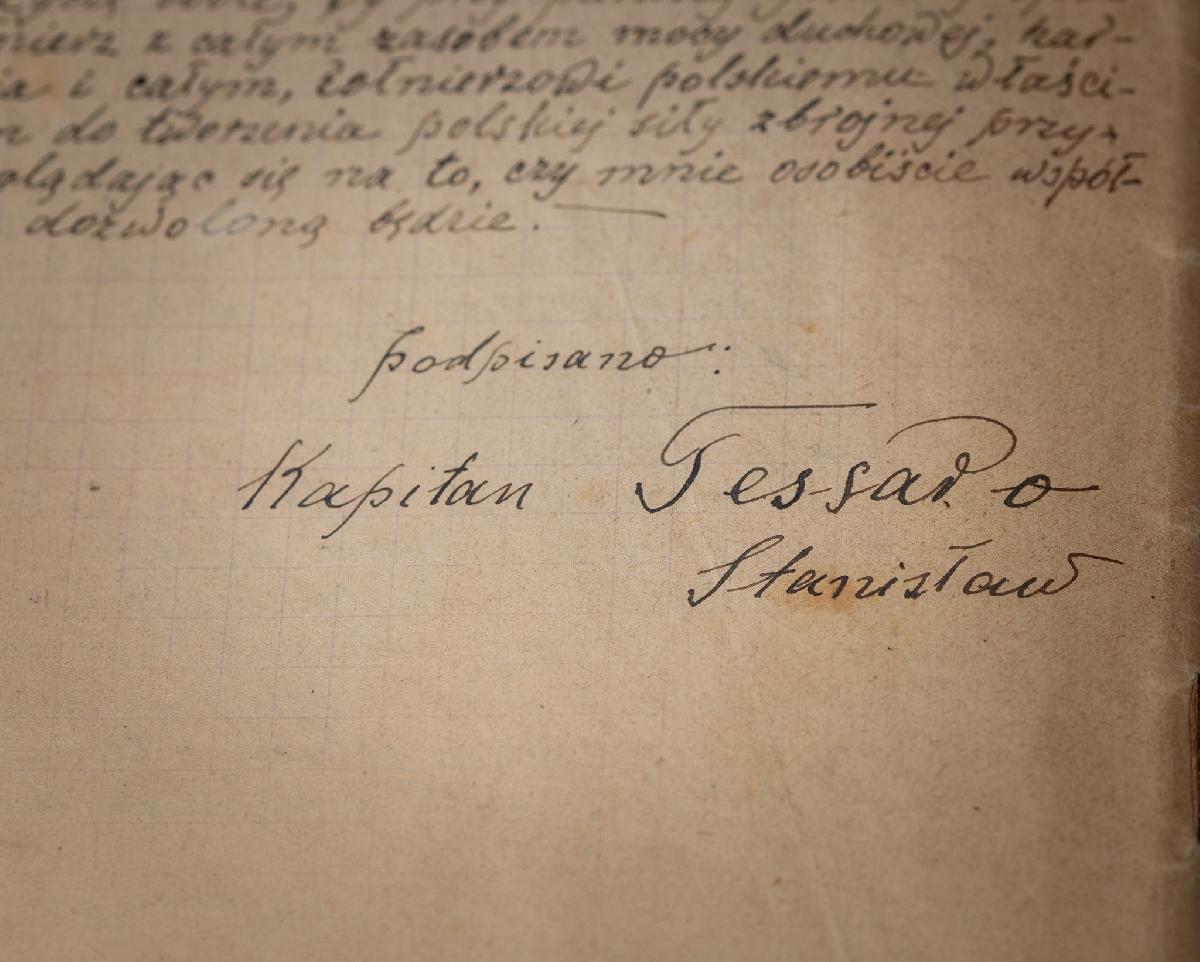 z całym zasobem mocy duchowej, har-
i całym, żołnierzowi polskiemu właści-
do tworzenia polskiej siły zbrojnej przy,
oglądając się na to, czy mnie osobiście współ-
dozwoloną będzie. —
podpisano:
Kapitan Tessaro
Stanisław